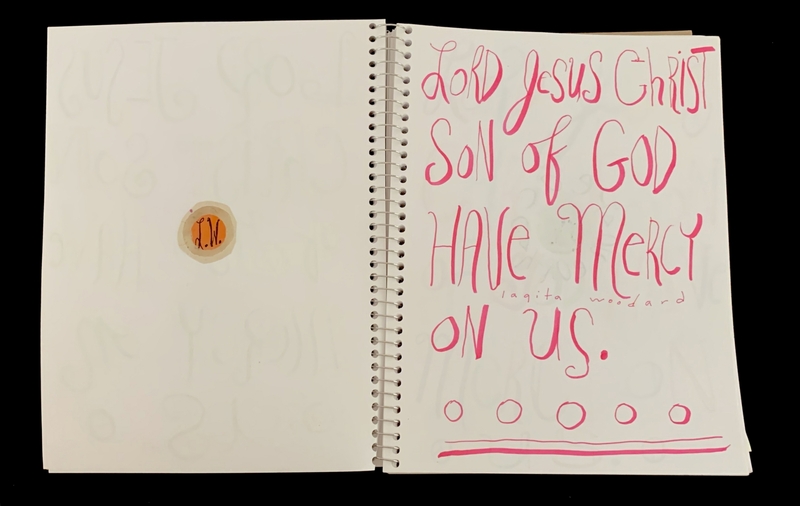 L.W.
LORD JESUS CHRIST
SON of GOD
HAVE MERCY
laqita woodard
ON US.